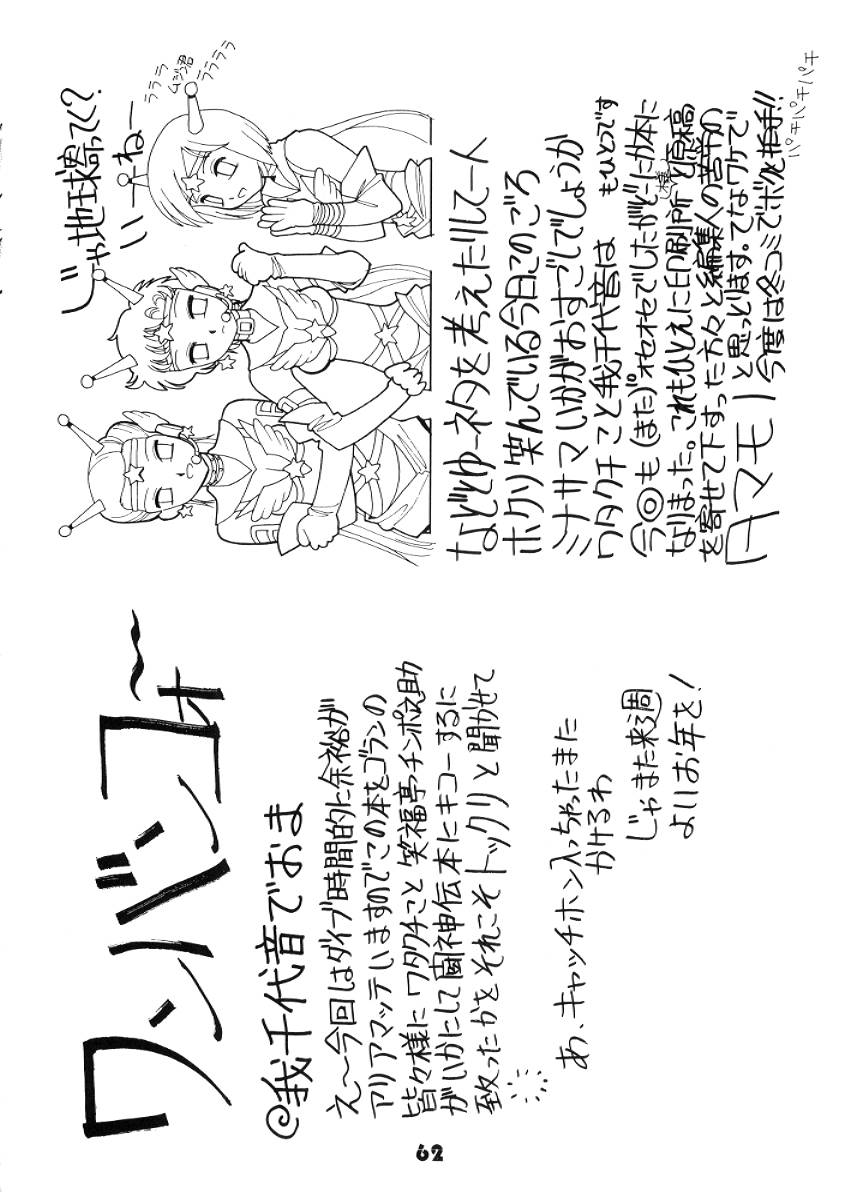 ワンバンコォ〜
@我千代音でおま
え〜今回はダイブ時間的に余裕が
アリアマッテいますのでこの本をゴランの
皆々様にワタクチこと笑福亭チンポ之助
がいかにして闘神伝本にキコーするに
至ったかをそれこそトックリと聞かせて
あ、キャッチホン入っちゃったまた
かけるわ
じゃまた来週
よいお年を!
じゃ地球寄ってく?
いーねー
ラララ
ムジン君
ララララ
などとゆーネタを考えたりして一人
ホクソ笑んでいる今日このごろ
ミナサマいかがおすごしでしょうか
ワタクチこと我千代音は もひとつです
今◎も(また)オセオセでしたがどーにか本に
なりまった。これもひとえに印刷所と原稿
を寄せて下すった方々と編集人の苦労の
タマモノと思っとります。てなワケで
今度は冬コミでボクと握手!!
パチパチパチ
62